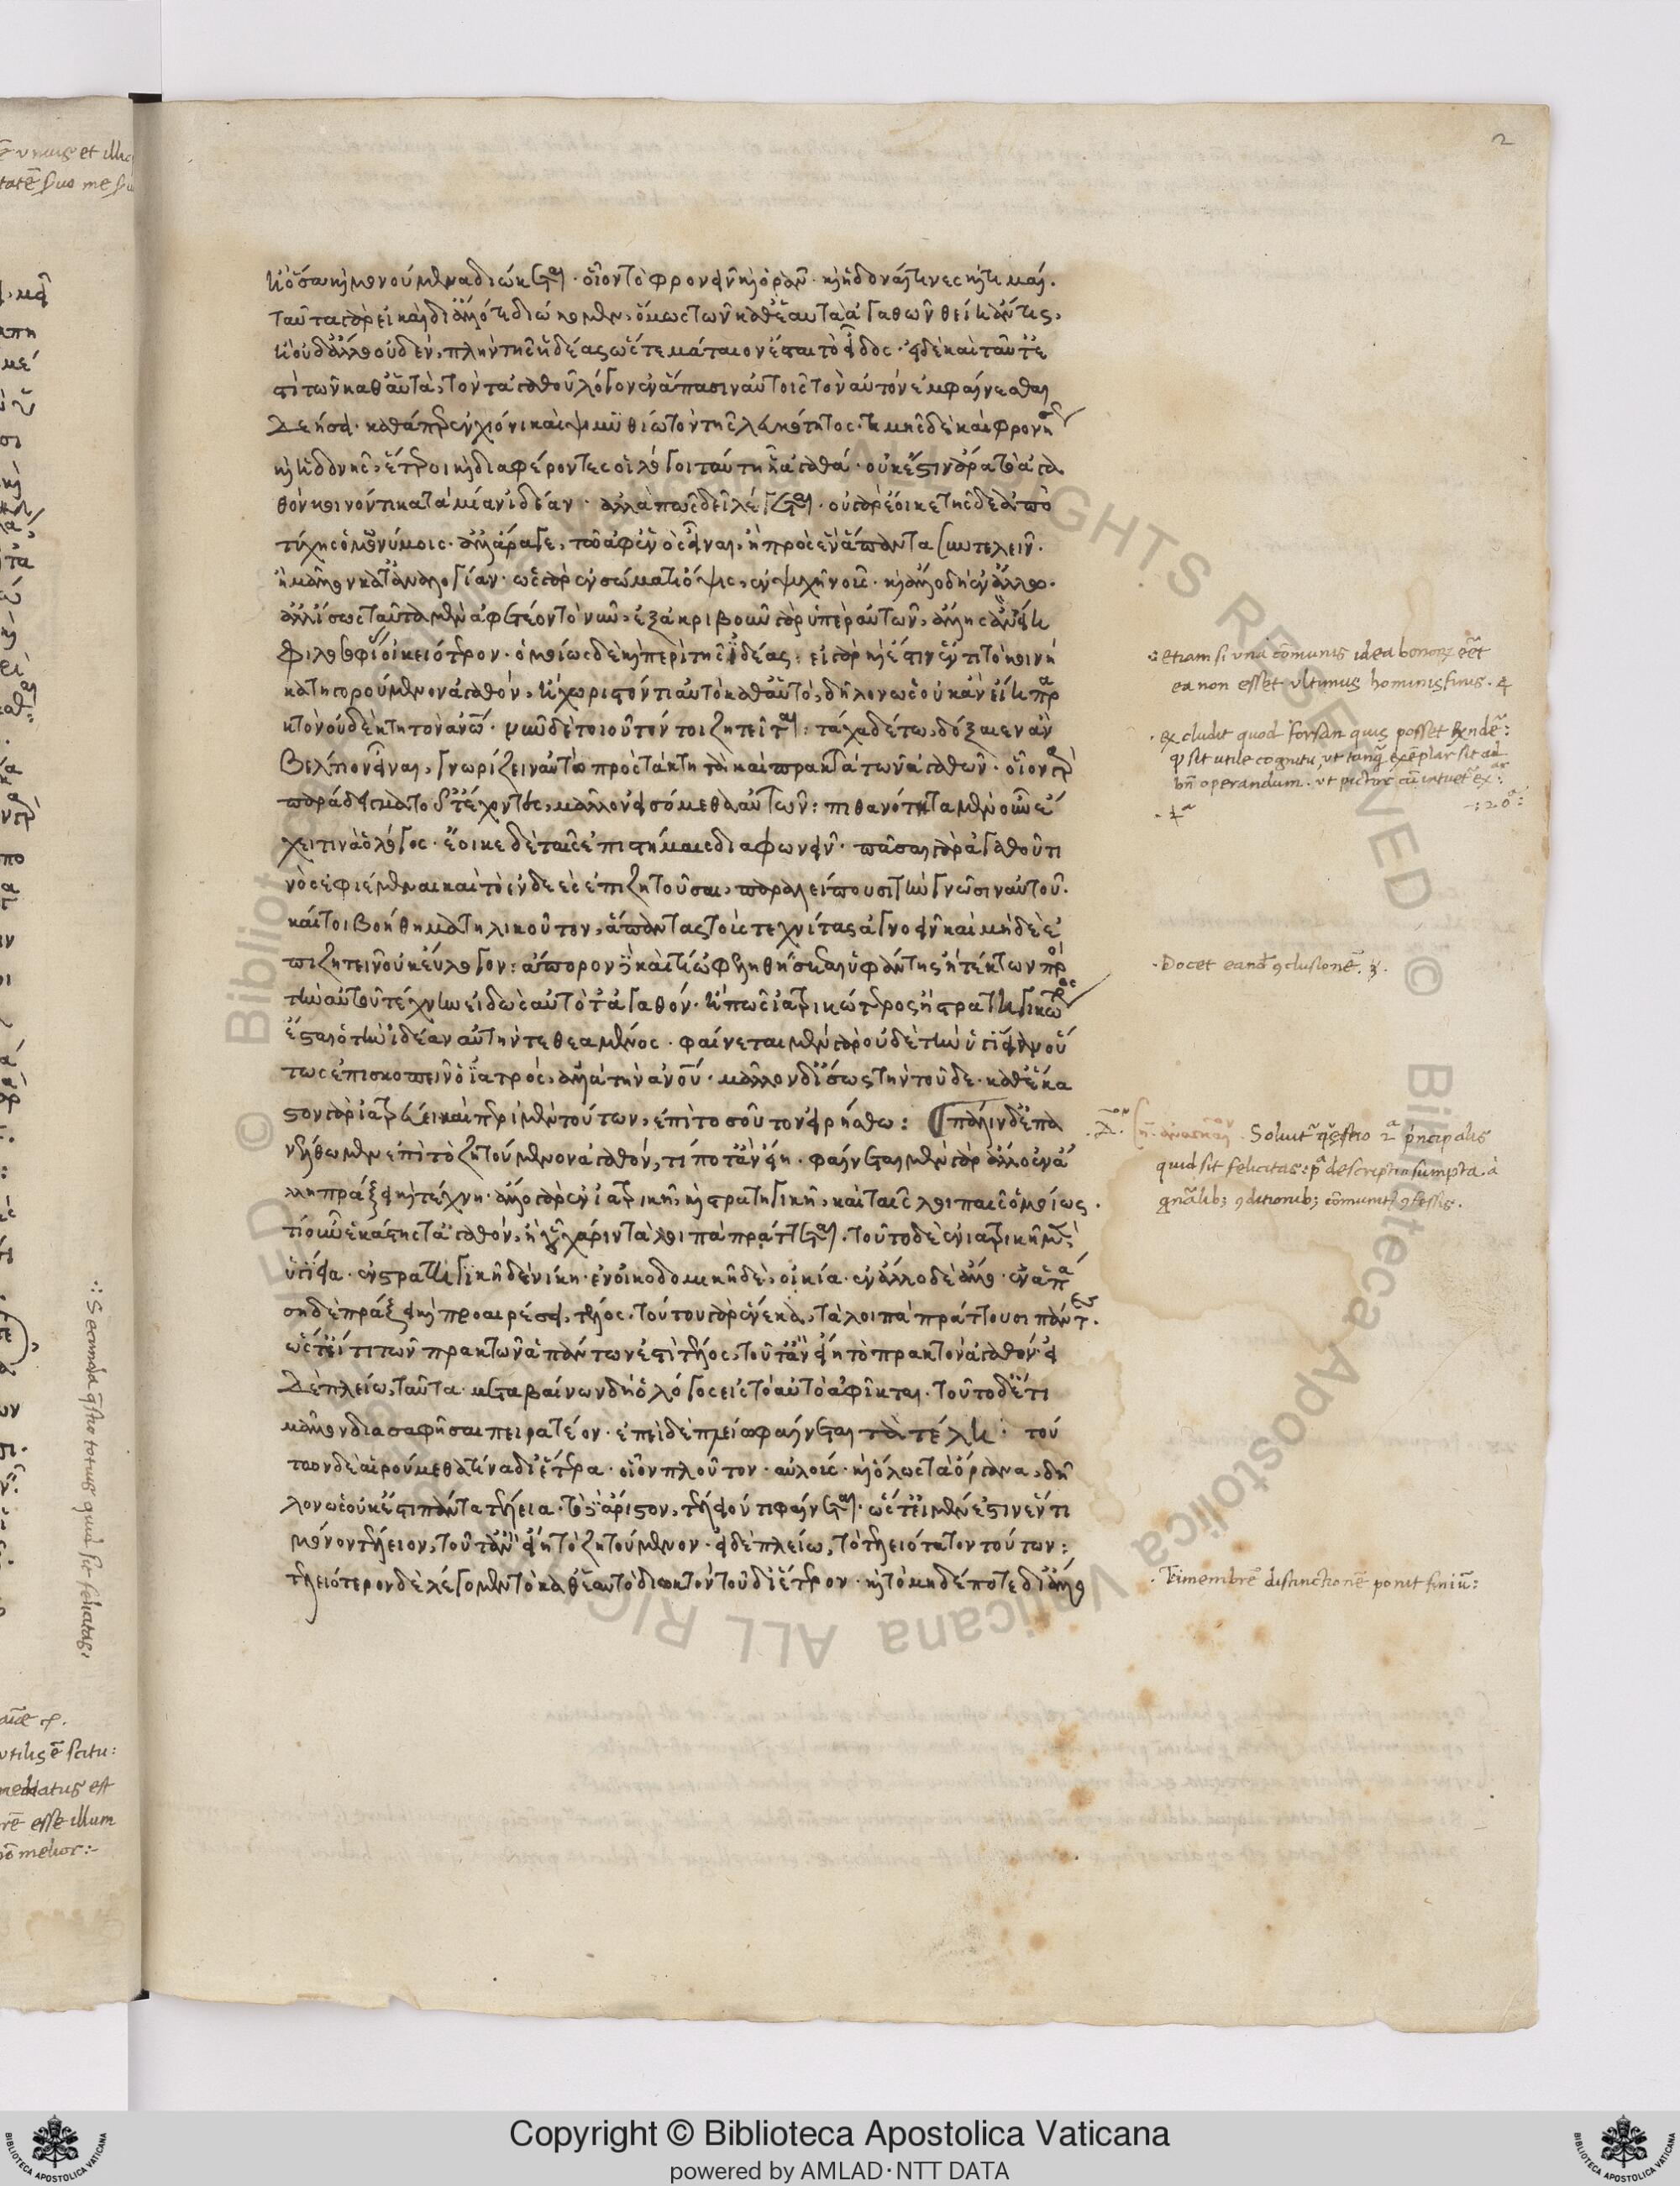 2
ἢ ὅσα καὶ μονούμενα διώκεται· οἷον τὸ φρονεῖν καὶ ὁρᾶν· καὶ ἡδοναί τινες καὶ τιμαί.
ταῦτα γὰρ εἰ καὶ δι' ἄλλό τι διώκομεν, ὅμως τῶν καθ' ἑαυτὰ ἀγαθῶν θείη ἄν τις,
ἢ οὐδ' ἄλλο οὐδέν, πλὴν τῆς ἰδέας ὥστε μάταιον ἔσται τὸ εἶδος· εἰ δὲ καὶ ταῦτ' ἐ
στὶ τῶν καθ' αὑτά, τὸν τἀγαθοῦ λόγον ἐν ἅπασιν αὐτοῖς τὸν αὐτὸν ἐμφαίνεσθαι
δεήσει· καθάπερ ἐν χιόνι καὶ ψιμυθίῳ τὸν τῆς λευκότητος· τιμῆς δὲ καὶ φρονήσεως
καὶ ἡδονῆς, ἕτεροι καὶ διαφέροντες οἱ λόγοι ταύτῃ ᾗ ἀγαθά· οὐκ ἔστιν ἄρα τὸ ἀγα
θὸν κοινόν τι κατὰ μίαν ἰδέαν· ἀλλὰ πῶς δεῖ λέγεται· οὐ γὰρ ἔοικε τοῖς γε ἀπὸ
τύχης ὁμωνύμοις· ἀλλ' ἆρά γε, τῷ ἀφ' ἑνὸς εἶναι, ἢ πρὸς ἓν ἅπαντα συντελεῖν·
ἢ μᾶλλον κατ' ἀναλογίαν· ὡς γὰρ ἐν σώματι ὄψις, ἐν ψυχῇ νοῦς· καὶ ἄλλο δὴ ἐν ἄλλῳ·
ἀλλ' ἴσως ταῦτα μὲν ἀφετέον τὸ νῦν· ἐξακριβοῦν γὰρ ὑπὲρ αὐτῶν, ἄλλης ἂν εἴη
φιλοσοφίας οἰκειότερον· ὁμοίως δὲ καὶ περὶ τῆς ἰδέας· εἰ γὰρ καὶ ἔστιν ἕν τι τὸ κοινῇ
κατηγορούμενον ἀγαθόν, ἢ χωριστόν τι αὐτὸ καθ' αὑτό, δῆλον ὡς οὐκ ἂν εἴη πρα
κτὸν οὐδὲ κτητὸν ἀνῳ· νῦν δὲ τοιοῦτόν τοι ζητεῖται: τάχα δέ τῳ, δόξαιεν ἂν
βέλτιον εἶναι, γνωρίζειν αὐτὸ πρὸς τὰ κτητὰ καὶ πρακτὰ τῶν ἀγαθῶν· οἷον γὰρ
παράδειγμα τοῦτ' ἔχοντες, μᾶλλον εἰσόμεθα αὐτῶν: πιθανότητα μὲν οὖν ἔ
χει τινὰ ὁ λόγος· ἔοικε δὲ ταῖς ἐπιστήμαις διαφωνεῖν· πᾶσαι γὰρ ἀγαθοῦ τι
νὸς ἐφιέμεναι καὶ τὸ ἐνδεὲς ἐπιζητοῦσαι, παραλείπουσι τὴν γνῶσιν αὐτοῦ.
καίτοι βοήθημα τηλικοῦτον, ἅπαντας τοὺς τεχνίτας ἀγνοεῖν καὶ μηδὲ ἐ
πιζητεῖν οὐκ εὔλογον: ἄπορον δὲ καὶ τί ὠφεληθήσεται ὑφάντης ἢ τέκτων πρὸς
τὴν αὐτοῦ τέχνην εἰδὼς αὐτὸ τἀγαθόν· ἢ πῶς ἰατρικώτερος ἢ στρατηγικώτερος
ἔσται ὁ τὴν ἰδέαν αὐτὴν τεθεαμένος· φαίνεται μὲν γὰρ οὐδὲ τὴν ὑγίειαν οὕ
τως ἐπισκοπεῖν ὁ ἰατρός, ἀλλὰ τὴν ἀνου· μᾶλλον δ' ἴσως τὴν τοῦδε· καθ' ἕκα
στον γὰρ ἰατρεύει καὶ περὶ μὲν τούτων, ἐπὶ τοσοῦτον εἰρήσθω: πάλιν δ' ἐπα
νέλθωμεν ἐπὶ τὸ ζητούμενον ἀγαθόν, τί ποτ' ἂν εἴη· φαίνεται μὲν γὰρ ἄλλο ἐν ἄ
λλῃ πράξει καὶ τέχνῃ· ἄλλο γὰρ ἐν ἰατρικῇ, καὶ στρατηγικῇ, καὶ ταῖς λοιπαῖς ὁμοίως.
τί οὖν ἑκάστης τἀγαθόν, ἢ οὗ χάριν τὰ λοιπὰ πράττεται· τοῦτο δὲ ἐν ἰατρικῇ μὲν
ὑγίεια· ἐν στρατηγικῇ δὲ νίκη· ἐν οἰκοδομικῇ δέ, οἰκία· ἐν ἄλλῳ δὲ ἄλλο· ἐν ἁπά
σῃ δὲ πράξει καὶ προαιρέσει, τέλος· τούτου γὰρ ἕνεκα, τὰ λοιπὰ πράττουσι πάντες.
ὥστ' εἴ τι τῶν πρακτῶν ἁπάντων ἐστὶ τέλος, τοῦτ' ἂν εἴη τὸ πρακτὸν ἀγαθόν· εἰ
δὲ πλείω, ταῦτα· μεταβαίνων δὴ ὁ λόγος εἰς τὸ αὐτὸ ἀφῖκται· τοῦτο δ' ἔτι
μᾶλλον διασαφῆσαι πειρατέον· ἐπεὶ δὲ πλείω φαίνεται τὰ τέλη· τού
των δὲ αἱρούμεθά τινα δι' ἕτερα· οἷον πλοῦτον· αὐλούς· καὶ ὅλως τὰ ὄργανα, δῆ
λον ὡς οὐκ ἔστι πάντα τέλεια· τὸ δ' ἄριστον, τέλειόν τι φαίνεται· ὥστ' εἰ μέν ἐστιν ἕν τι
μόνον τέλειον, τοῦτ' ἂν εἴη τὸ ζητούμενον· εἰ δὲ πλείω, τὸ τελειότατον τούτων:
τελειότερον δὲ λέγομεν τὸ καθ' ἑαυτὸ διωκτὸν τοῦ δι' ἕτερον· καὶ τὸ μηδέποτε δι' ἄλλο
:: etiam si vna cõmunis idea bonoꝝ eẽt
ea non esset vltimus hominis finus.
excludit quod forsan quis posset
sit utile cognitu, vt tanq̃ exẽplar sit ad
operandum. vt pictor cũ intuet ex:
Docet eand clusionẽ.
Soluit q̃stio 2ª principalis
quid sit felicitas: descriptio sumpta. à
Trimembrẽ distinctionẽ ponit finiũ:
:: Secunda q̃stio totius quid sit felicitas
vnius et illi
tatẽ suo me su
vtilis ẽ scitu:
mediatus est
rẽ esse illum
melior:-
Copyright © Biblioteca Apostolica Vaticana
powered by AMLAD·NTT DATA